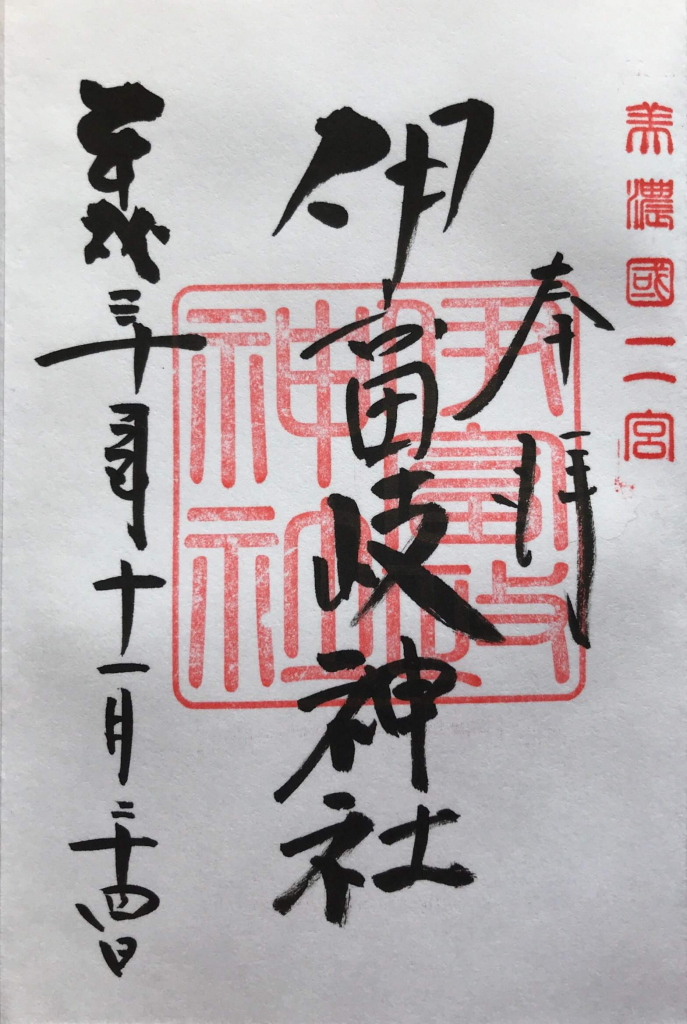 美濃國二宮
奉拝
伊富岐神社
伊富岐
神社
平成三十年十一月二十四日